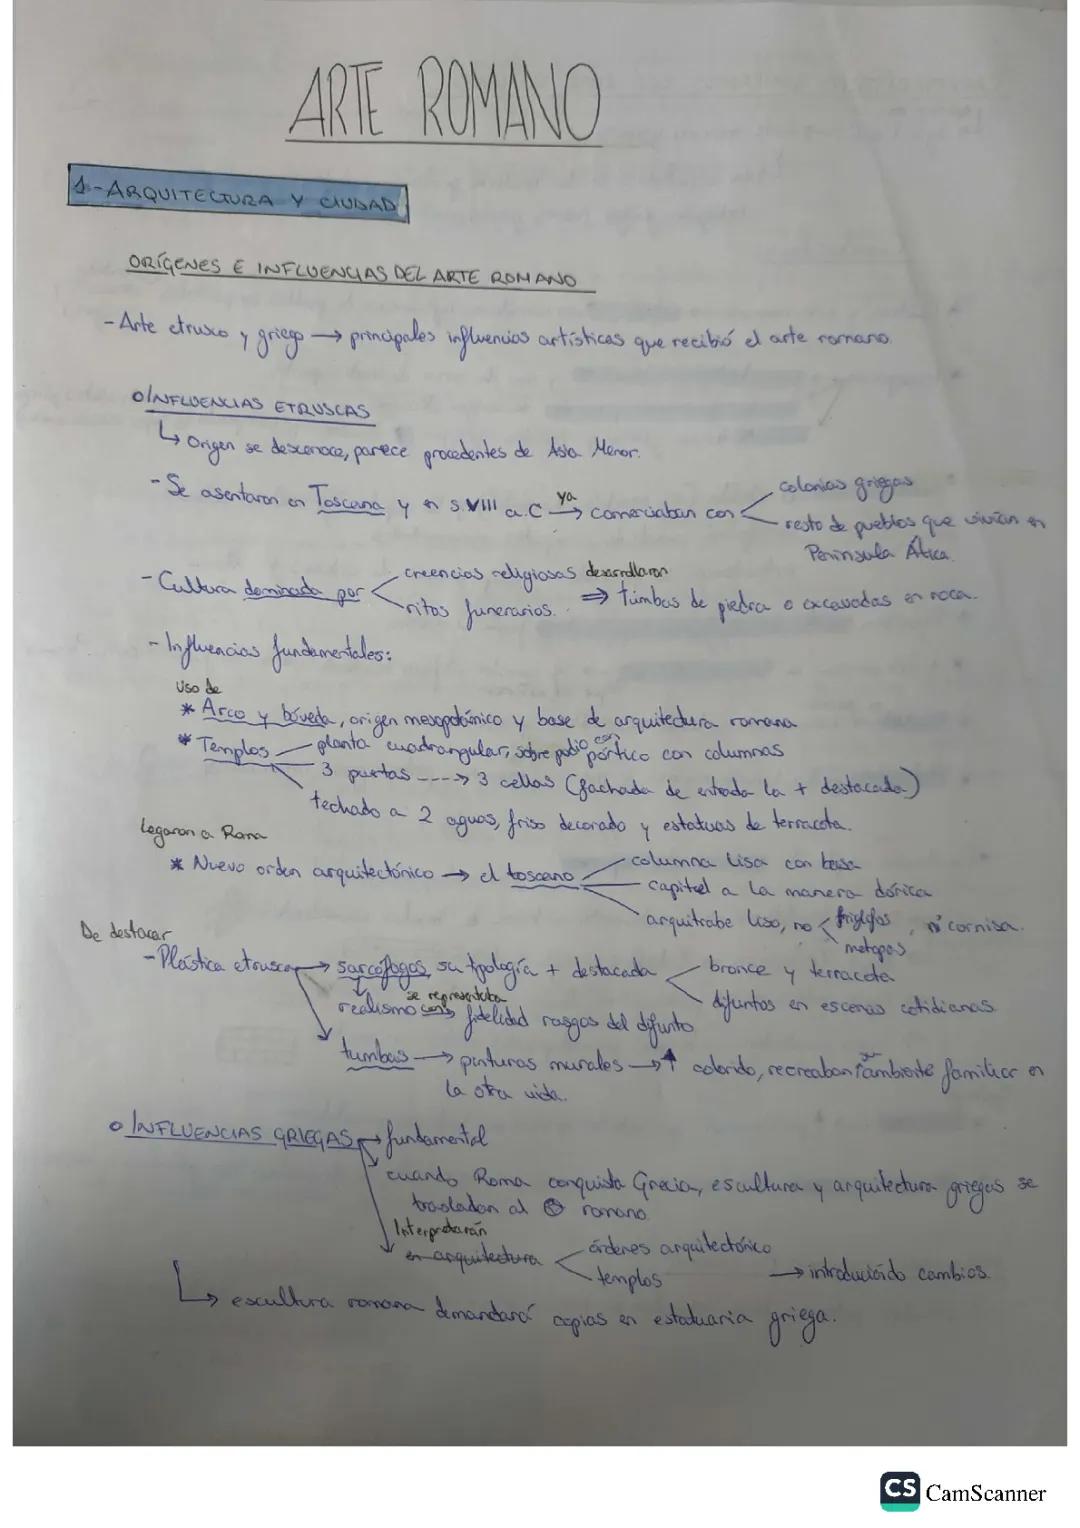 ARTE ROMANO
1-ARQUITECTURA Y CIUDAD
ORÍGENES E INFLUENCIAS DEL ARTE ROMANO
- Arte etrusco y griego → principales influencias artísticas que recibió el arte romano.
o INFLUENCIAS ETRUSCAS
↳ Origen se desconoce, parece procedentes de Asia Menor.
- Se asentaron en Toscana y en s.VIII a.C ya → comerciaban con
colonias griegas
resto de pueblos que vivían en
Península Ática.
- Cultura dominada por
creencias religiosas desarrollaron
ritos funerarios. ⇒ tumbas de piedra o excavadas en roca.
- Influencias fundamentales:
Uso de
* Arco y bóveda, origen mesopotámico y base de arquitectura romana
* Templos planta cuadrangular, sobre podio con pórtico con columnas
3 puertas ----> 3 cellas (fachada de entrada la + destacada)
techado a 2 aguas, friso decorado y estatuas de terracota.
Legaron a Roma
* Nuevo orden arquitectónico → el toscano
columna lisa con basa
capitel a la manera dórica
arquitrabe liso, no friglifos, ni cornisa.
metopas
De destacar
- Plástica etrusca → sarcófagos, su tipología + destacada
bronce y terracota
difuntos en escenas cotidianas.
realismo se representaba con fidelidad rasgos del difunto
tumbas → pinturas murales → ↑ colorido, recreaban ambiente familiar en
la otra vida.
o INFLUENCIAS GRIEGAS → fundamental
cuando Roma conquista Grecia, escultura y arquitectura griegas se
trasladan al romano.
Interpretarán
en arquitectura
órdenes arquitectónico
templos
→ introduciendo cambios.
↳ escultura romana demandará copias en estatuaria griega.
CS CamScanner